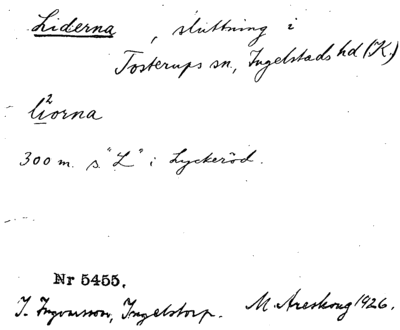 Liderna, sluttning i
Tosterups sn., Ingelstads hd (K.)
li²orna
300 m. s "L" i Lyckeröd.
Nr 5455.
I. Ingvarsson, Ingelstorp. M. Areskoug 1926.